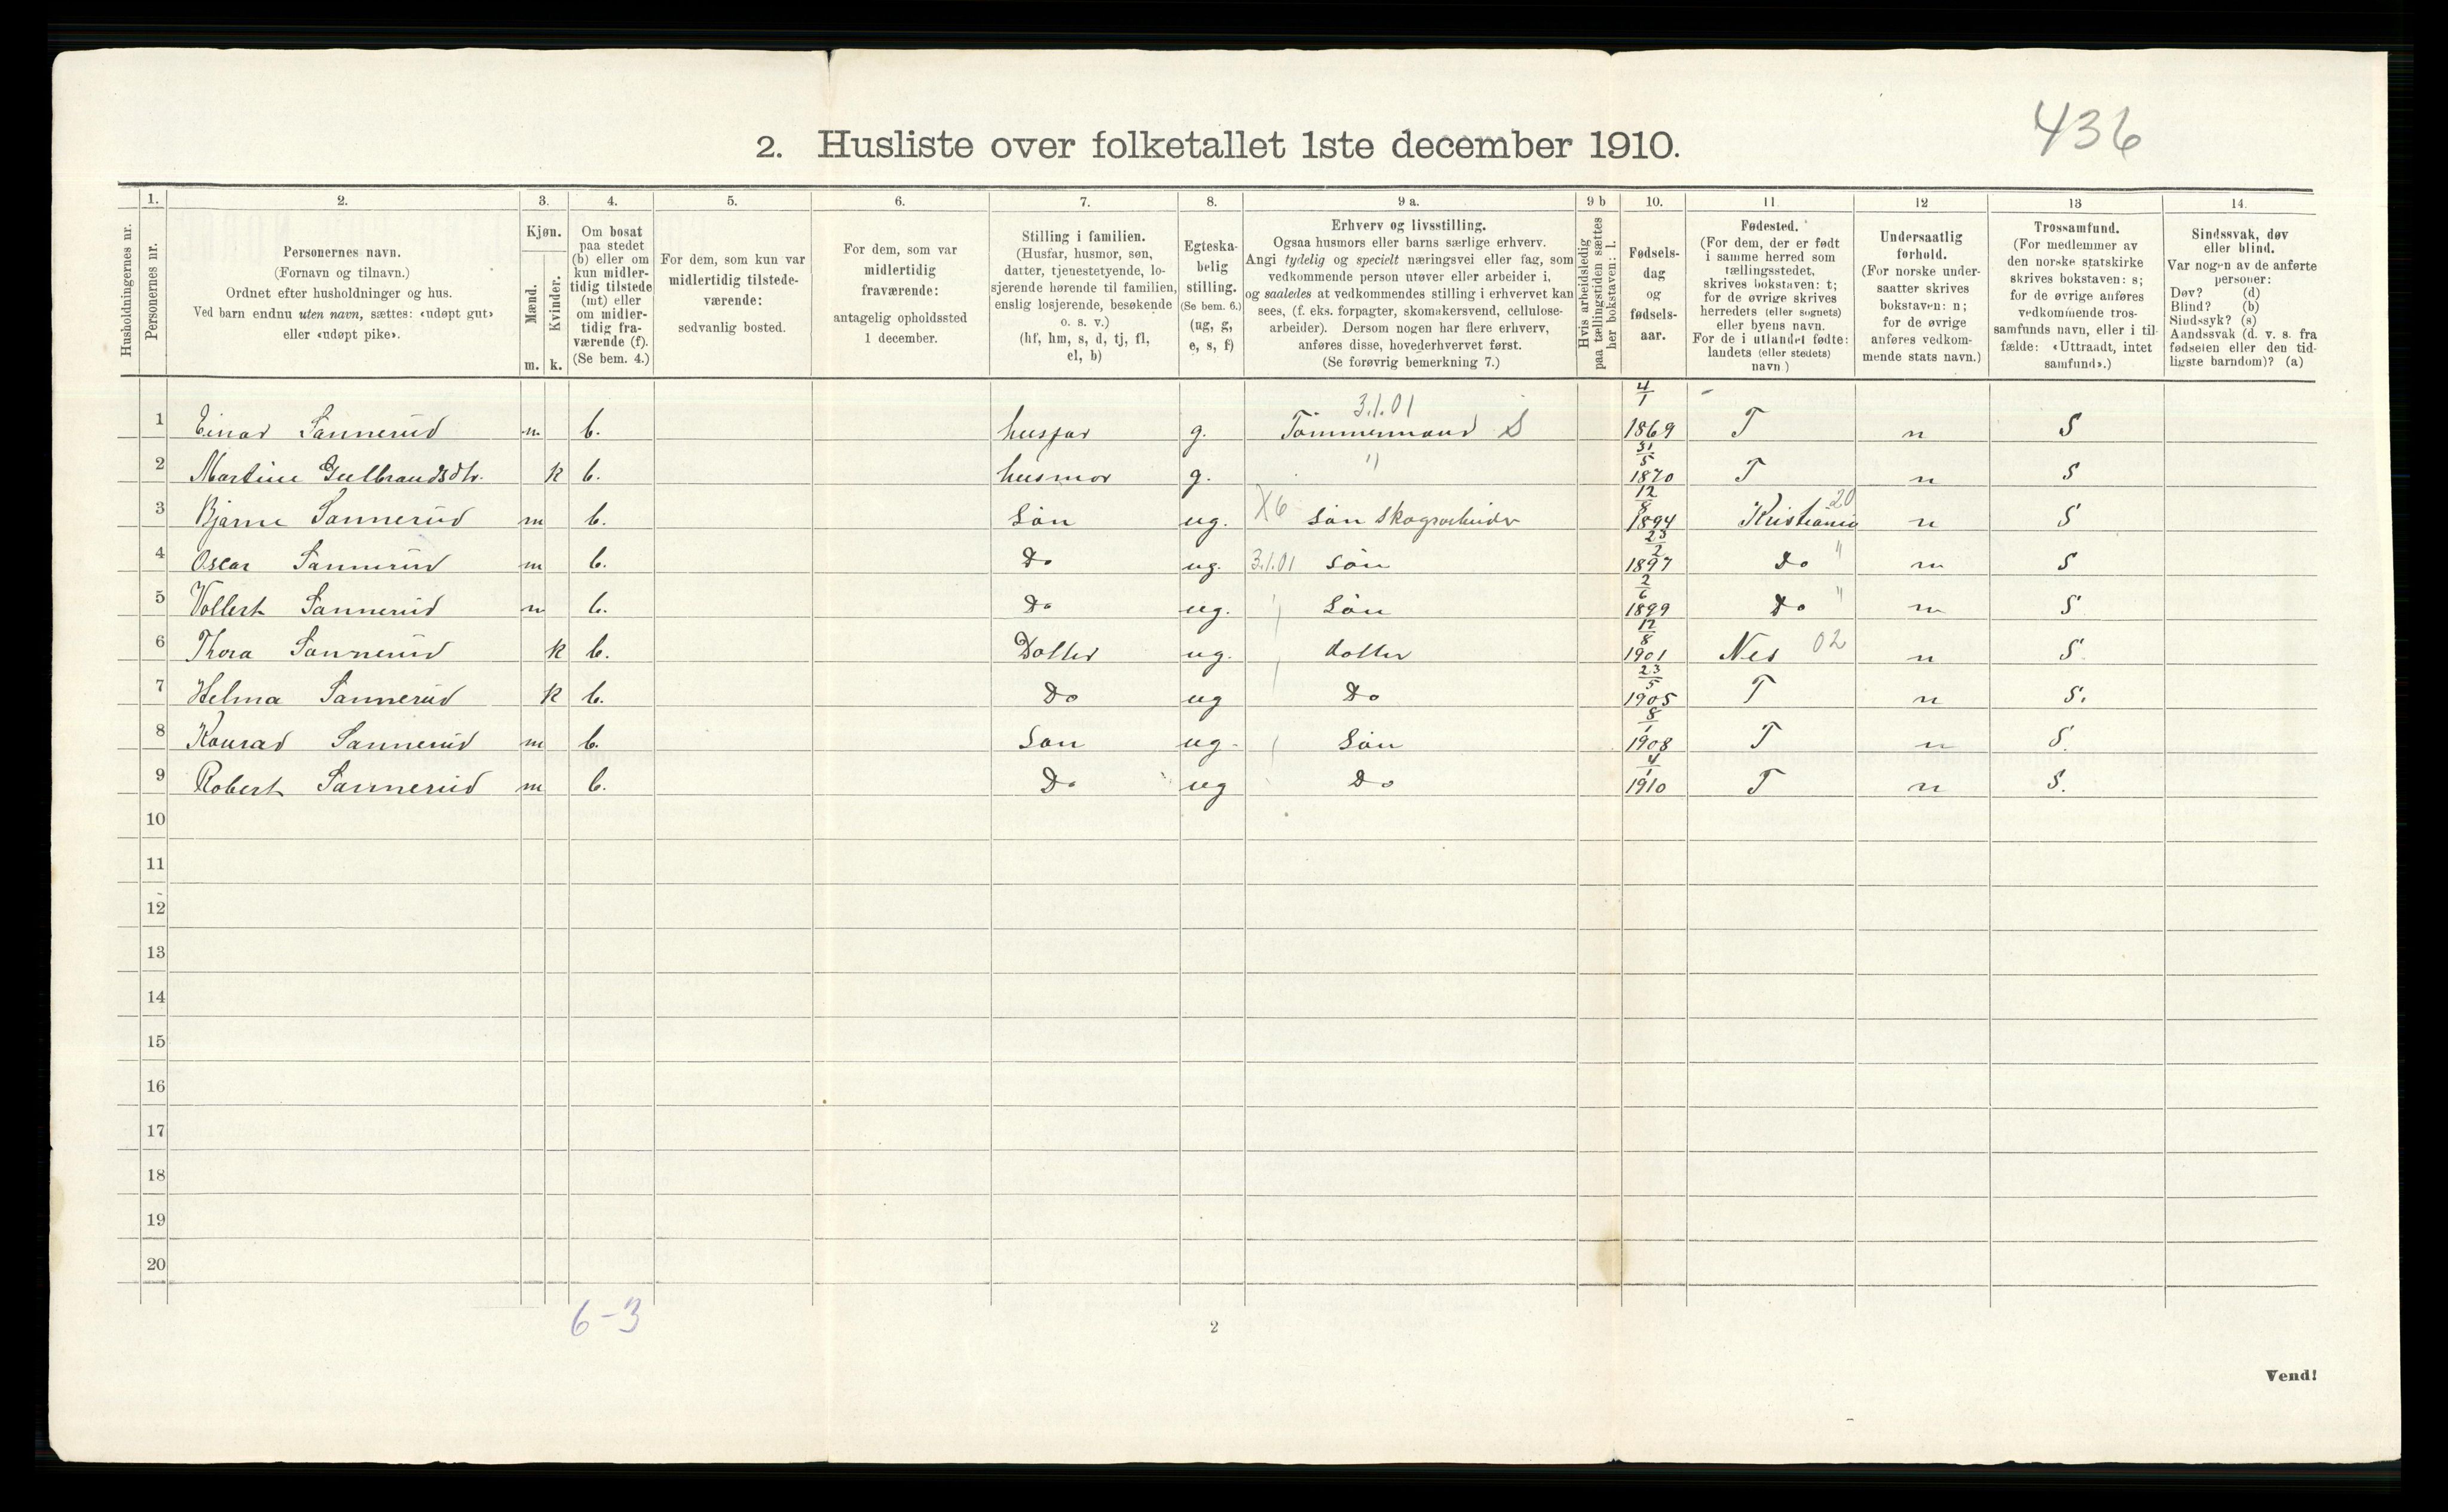 436
2. Husliste over folketallet 1ste december 1910.
Husholdningernes nr.
1. Personernes nr.
2. Personernes navn.
(Fornavn og tilnavn.)
Ordnet efter husholdninger og hus.
Ved barn endnu uten navn, sættes: «udøpt gut»
eller «udøpt pike».
3. Kjøn.
Mænd. Kvinder.
m. k.
4. Om bosat
paa stedet
(b) eller om
kun midler-
tidig tilstede
(mt) eller
om midler-
tidig fra-
værende (f).
(Se bem. 4.)
5. For dem, som kun var
midlertidig tilstede-
værende:
sedvanlig bosted.
6. For dem, som var
midlertidig
fraværende:
antagelig opholdssted
1 december.
7. Stilling i familien.
(Husfar, husmor, søn,
datter, tjenestetyende, lo-
sjerende hørende til familien,
enslig losjerende, besøkende
o. s. v.)
(hf, hm, s, d, tj, fl,
el, b)
8. Egteska-
belig
stilling.
(Se bem. 6.)
(ug, g,
e, s, f)
9 a. Erhverv og livsstilling.
Ogsaa husmors eller barns særlige erhverv.
Angi tydelig og specielt næringsvei eller fag, som
vedkommende person utøver eller arbeider i,
og saaledes at vedkommendes stilling i erhvervet kan
sees, (f. eks. forpagter, skomakersvend, cellulose-
arbeider). Dersom nogen har flere erhverv,
anføres disse, hovederhvervet først.
(Se forøvrig bemerkning 7.)
9 b Hvis arbeidsledig
paa tællingstiden sættes
her bokstaven: l.
10. Fødsels-
dag
og
fødsels-
aar.
11. Fødested.
(For dem, der er født
i samme herred som
tællingsstedet,
skrives bokstaven: t;
for de øvrige skrives
herredets (eller sognets)
eller byens navn.
For de i utlandet fødte:
landets (eller stedets)
navn)
12 Undersaatlig
forhold.
(For norske under-
saatter skrives
bokstaven: n;
for de øvrige
anføres vedkom-
mende stats navn.)
13 Trossamfund.
(For medlemmer av
den norske statskirke
skrives bokstaven: s;
for de øvrige anføres
vedkommende tros-
samfunds navn, eller i til-
fælde: «Uttraadt, intet
samfund».)
14. Sindssvak, døv
eller blind.
Var nogen av de anførte
personer:
Døv? (d)
Blind? (b)
Sindssyk? (s)
Aandssvak (d. v. s. fra
fødselen eller den tid-
ligste barndom)? (a)
3.1.01 4/1
1 Einar Sannerud m b. husfar g. Tømmermand S 1869 T n S
31/5
2 Martine Gulbrandsdtr. k b. husmor g. " 1870 T n S
12/8 20
3 Bjarne Sannerud m b. Søn ug. X6 søn skogsarbeider 1894 Kristiania n S
23/2
4 Oscar Sannerud m b. Do ug. 3.1.01 Søn 1897 Do " n S
2/6
5 Volbert Sannerud m b. Do ug. Søn 1899 Do " n S
12/8
6 Thora Sannerud k b. Datter ug. datter 1901 Nes 02 n S
23/5
7 Helma Sannerud k b. Do ug Do 1905 T n S.
8/1
8 Konrad Sannerud m b. Søn ug. Søn 1908 T n S.
4/1
9 Robert Sannerud m b. Do ug Do 1910 T n S.
10
11
12
13
14
15
16
17
18
19
20
6-3
2
Vend!